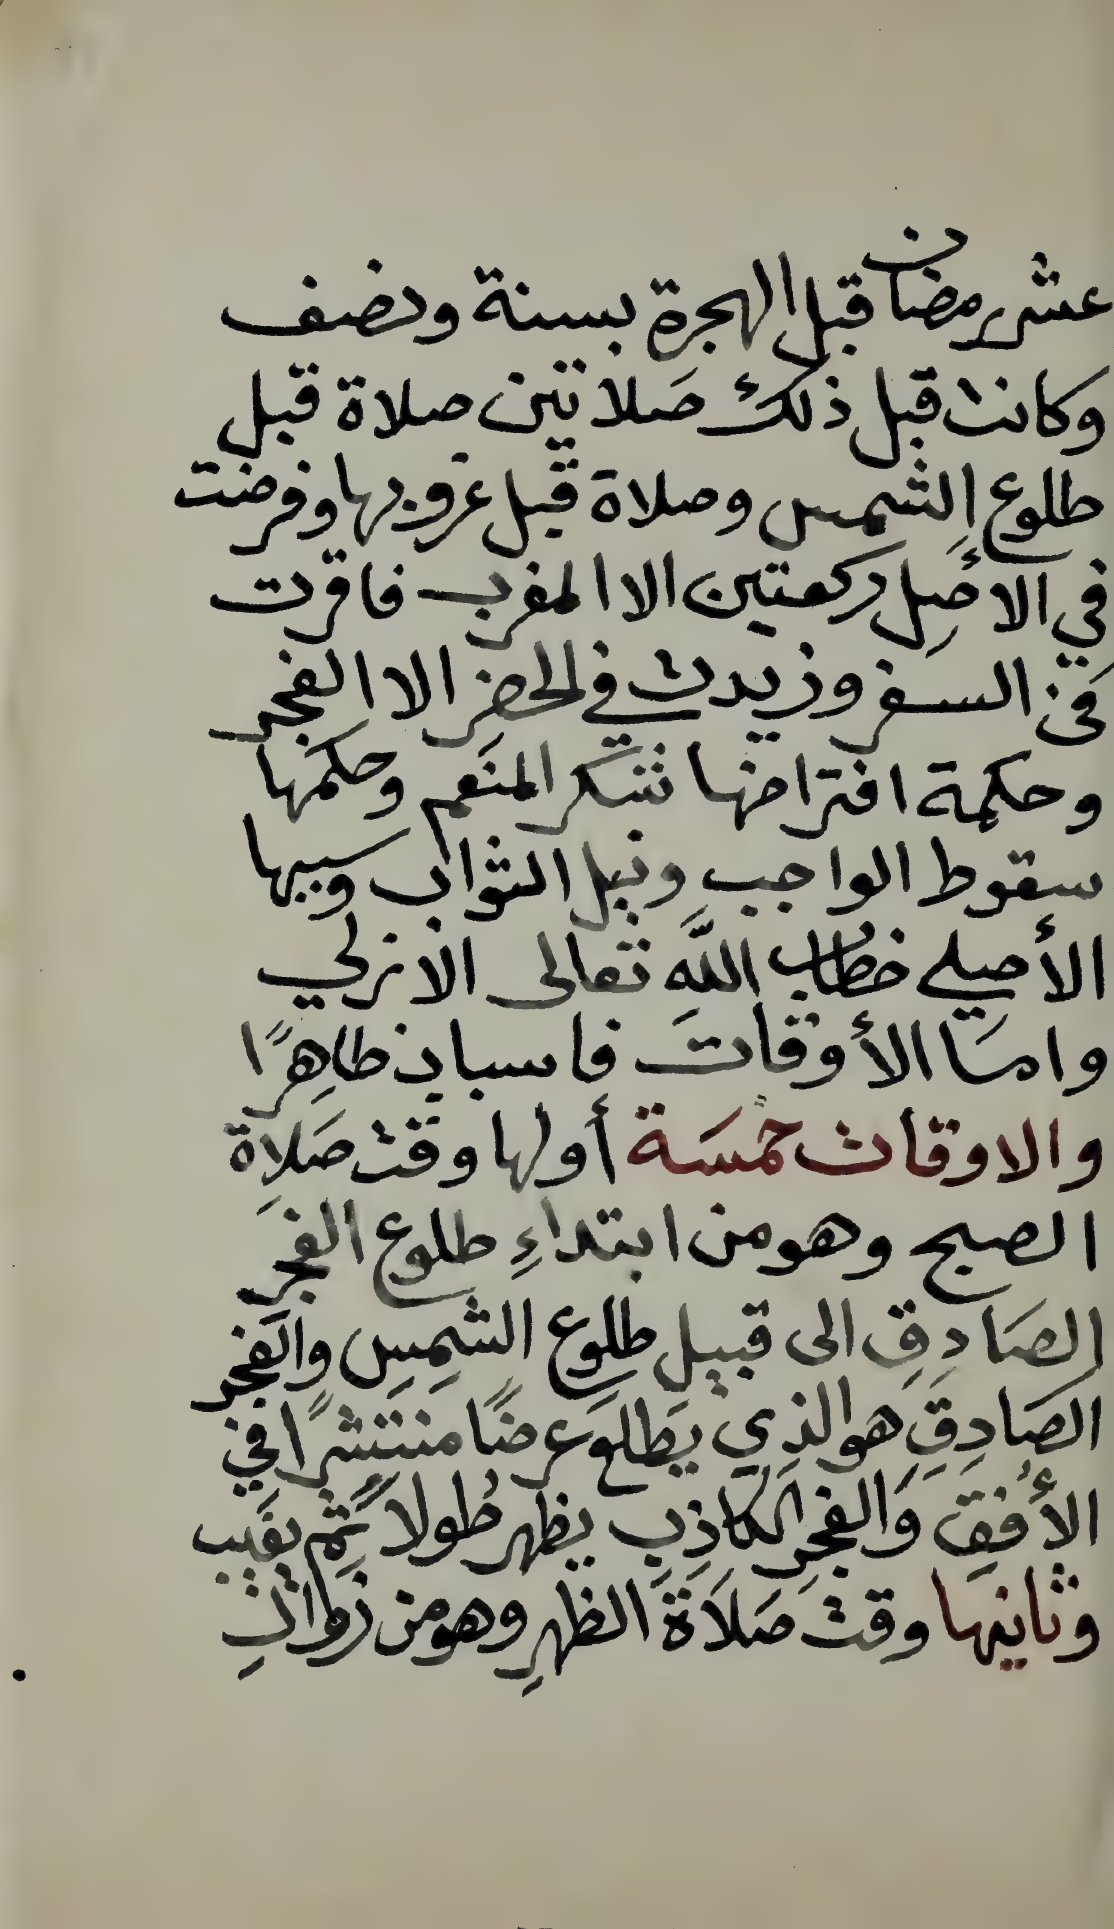 عشر رمضان قبل الهجرة بسنة ونصف
وكانت قبل ذلك صَلاتين صلاة قبل
طلوع الشمس وصلاة قبل غروبها وفرضت
في الأصِل ركعتين الا المغرب فاقرت
في السفر وزيدت في الحضر الا الفجر
وحكمة افتراضها شكر المنعم وحكمها
سقوط الواجب ونيل الثواب وسببها
الأصلي خطاب اللّه تعالى الازلي
وامَا الأوقات فاسباب ظاهِرًا
والاوقات خمسَة أولها وقت صَلاة
الصبح وهو من ابتداءِ طلوع الفجر
الصَادِقِ الى قبيل طلوع الشمِسِ والفجر
الصَادِقِ هو الذِي يَطلع عرضًا منتشرًا في
الأُفقِ وَالفجرِ الكاذِبِ يظهر طُولاً ثم يغيب
وثانيها وقتَ صَلاَة الظهرِ وهو من زوالِ